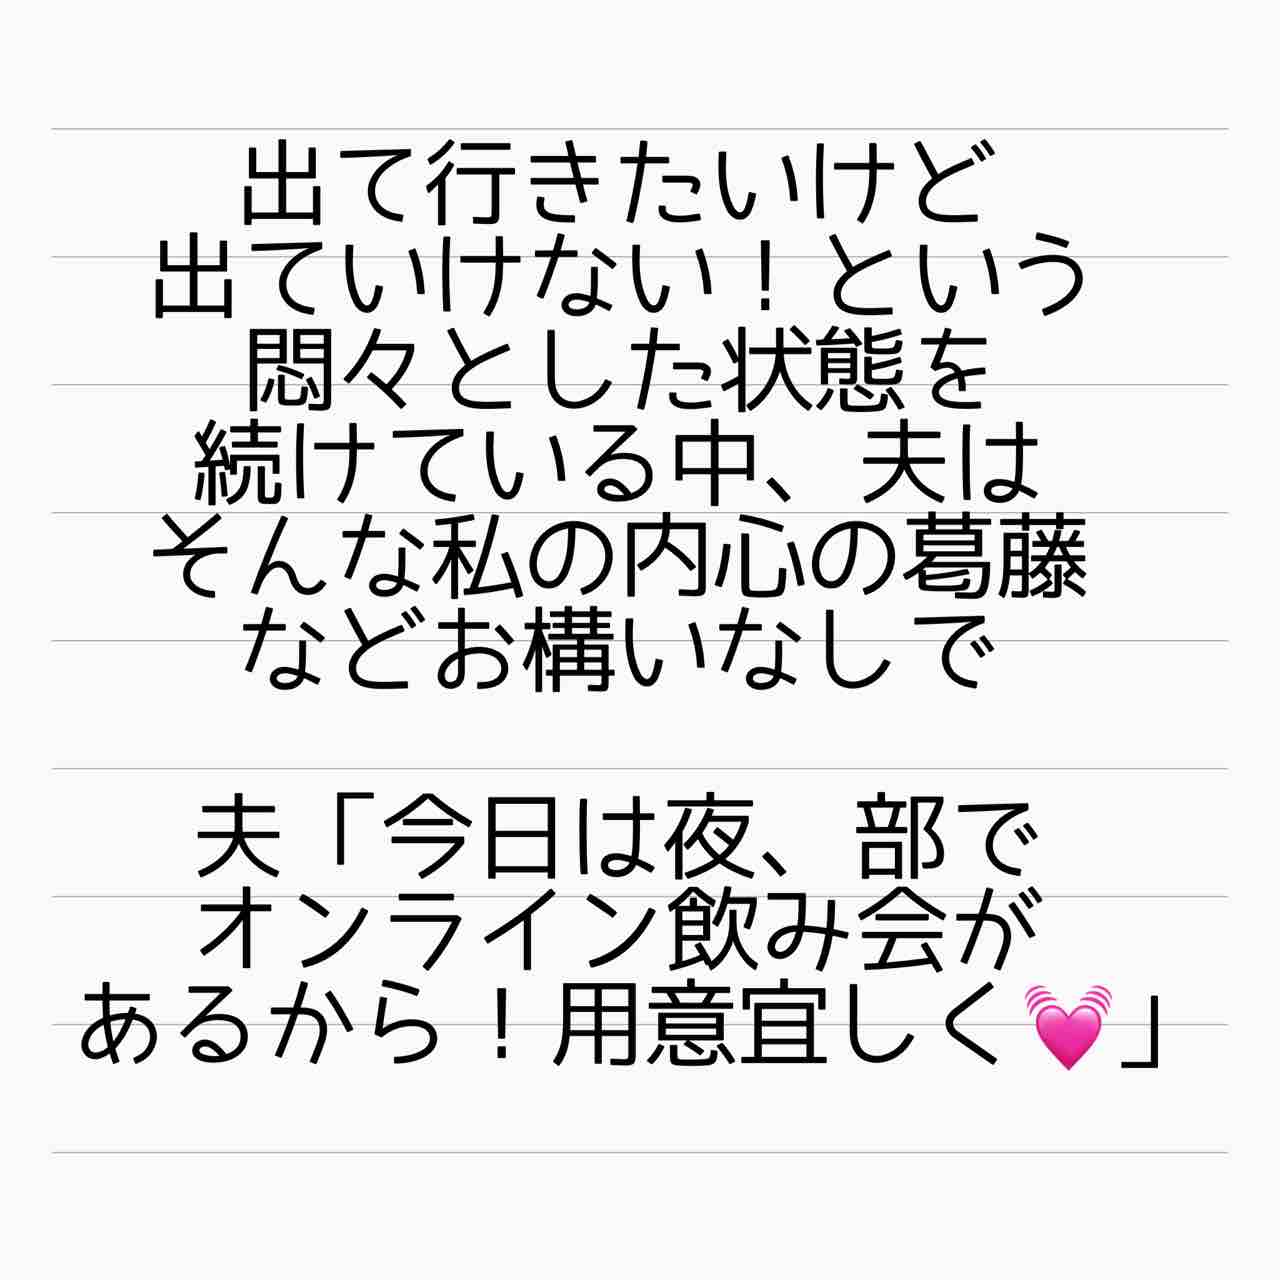 出て行きたいけど
出ていけない！という
悶々とした状態を
続けている中、夫は
そんな私の内心の葛藤
などお構いなしで
夫「今日は夜、部で
オンライン飲み会が
あるから！用意宜しく💓」